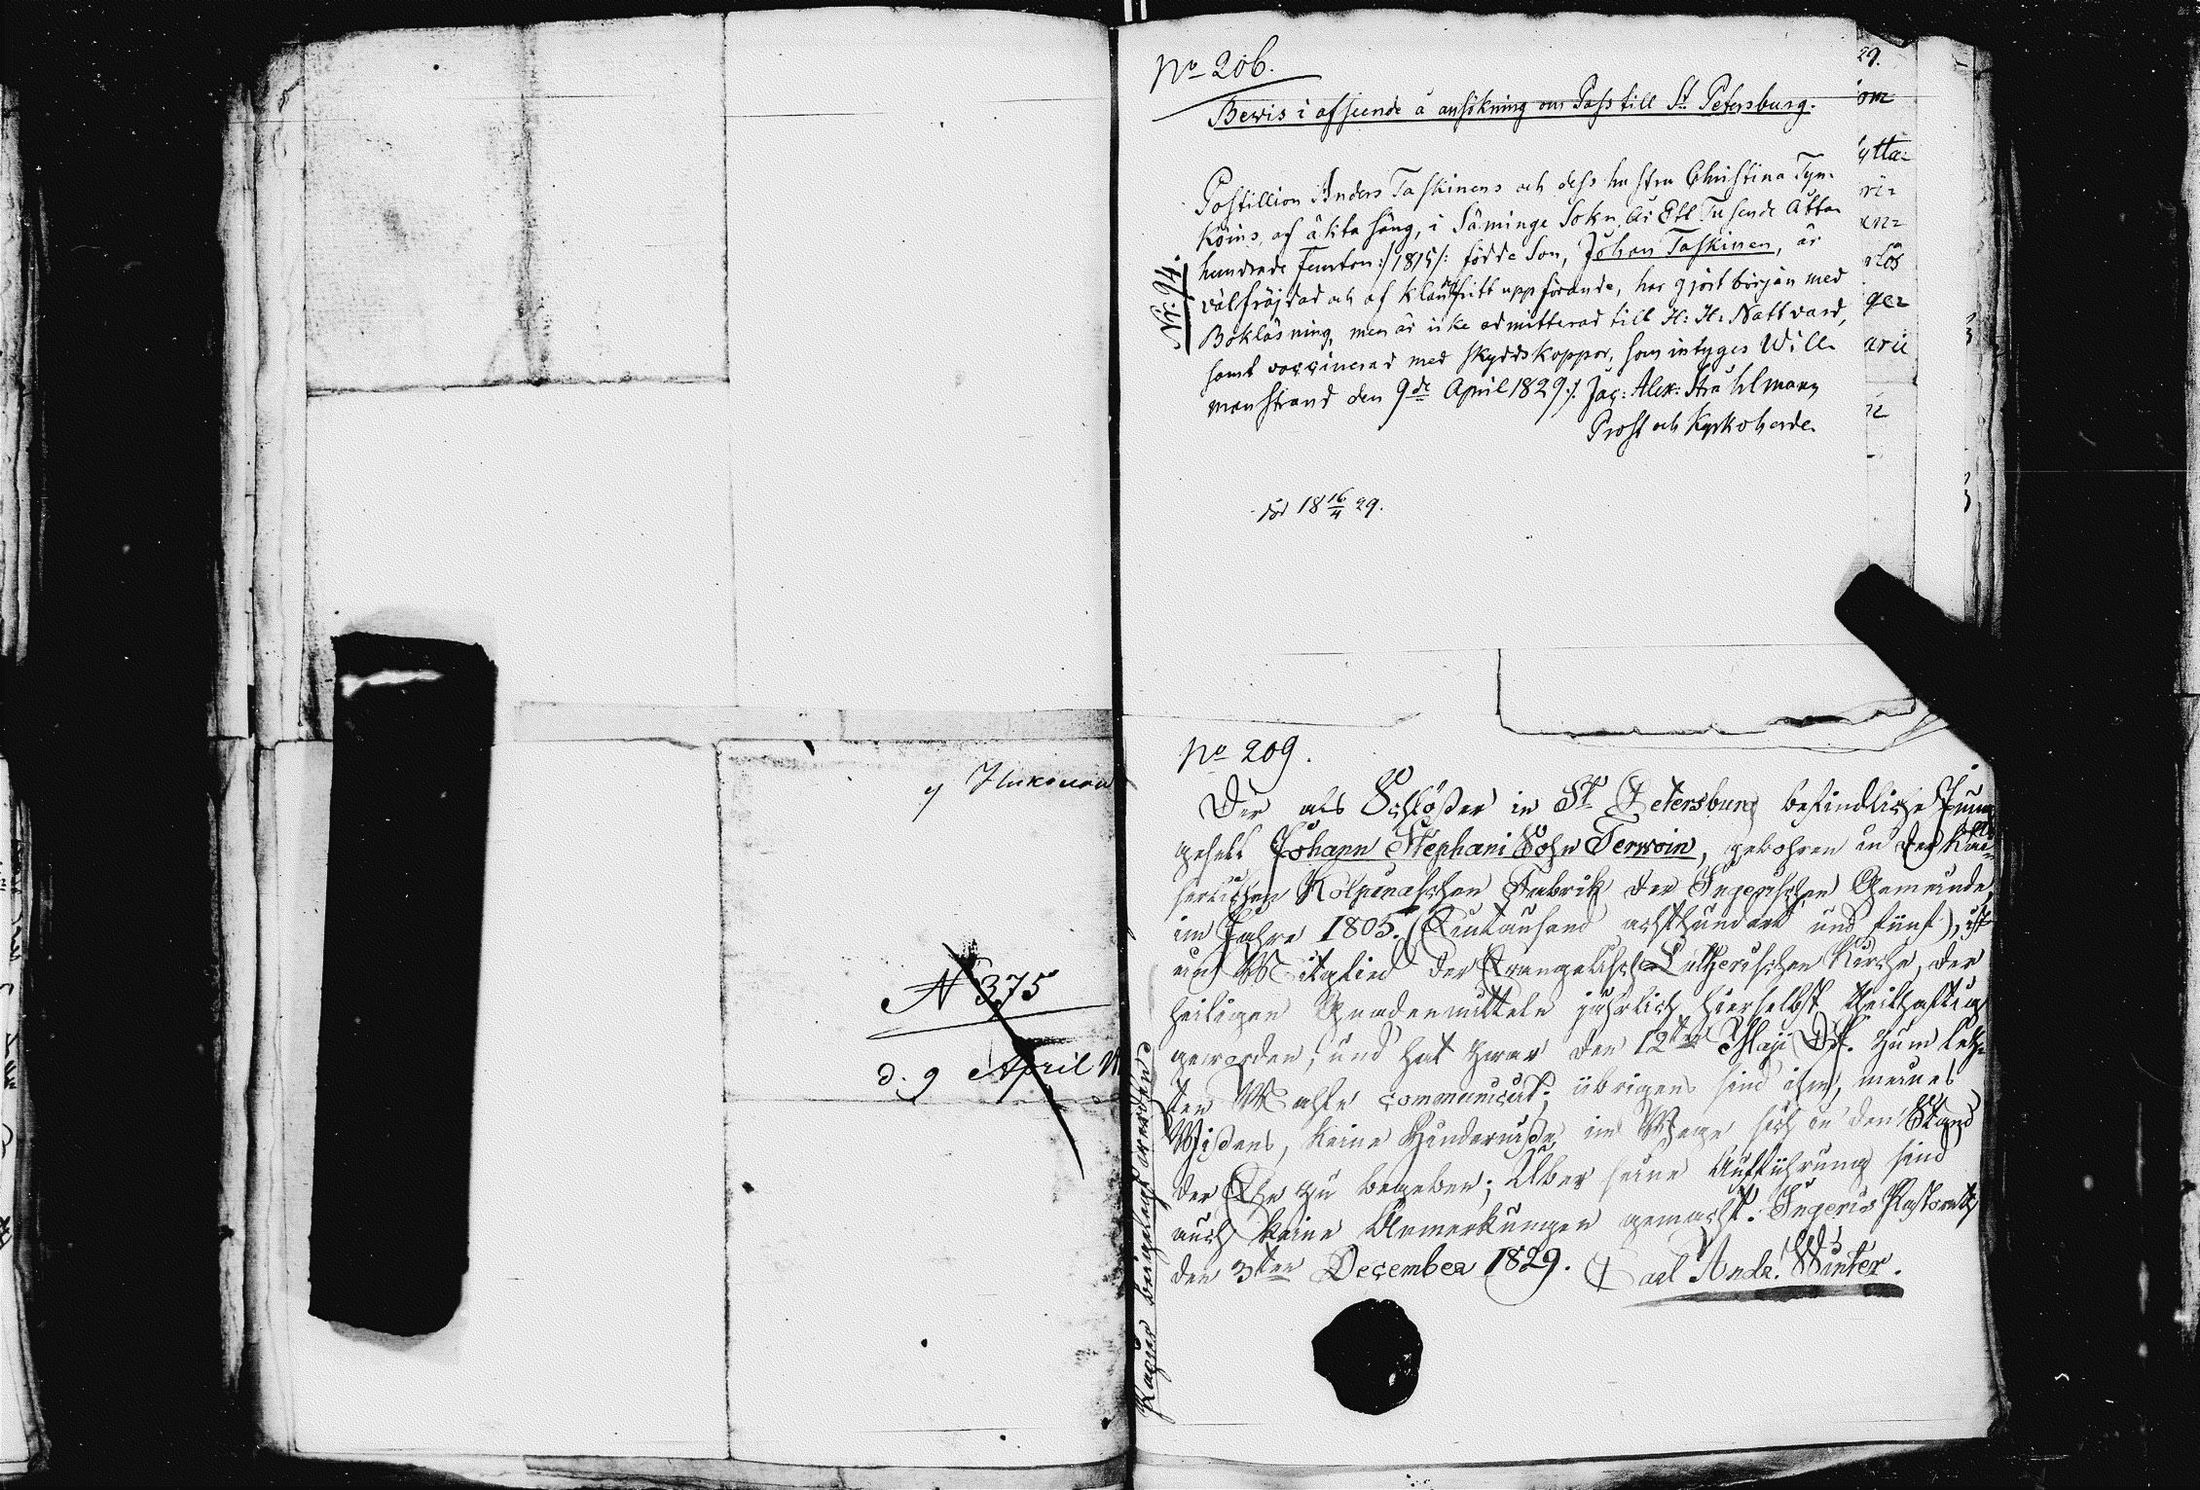 y
N 375
d. 9 April
No 206.
Bewis i afseende å ansökning om Pass till St. Petersburg.
Nr: 94.
Postillion Anders Taskinens och dess hustru Christina Tyn-
köins, af äkta säng, i Säminge Sokn, År Ett Tusende Åtta
hundrade Femton :/1815/: födde Son, Johan Taskinen, är
välfräjdad och af klanderfritt uppförande, har gjort början med
Bokläsning, men är icke admitterad till H: H: Nattvard,
samt vaccinerad med skyddskoppor, som intyges Will-
manstrand den 9de April 1829. Jac: Alex: Stråhlman
Prost och Kyrkoherde.
18 16/4 29.
29.
om
ytta-
ri-
en-
rlös
ge-
arie
No 209.
Der als Schlößer in St. Petersburg befindliche Jung-
gesell Johann Stephani Sohn Terwoin, gebohren in der Kai-
serlichen Kolpinaschen Fabrik der Ingerischen Gemeinde,
im Jahre 1805. (Eintausend achthundert und fünf), ist
ein Mitglied der Evangelisch-Lutherischen Kirche, der
heiligen Gnadenmitteln jährlich hierselbst theilhaftig
geworden, und hat zwar den 12ten Maji d. J. zum letz-
ten Mahle communicirt; übrigens sind ihm, meines
Wißens, keine Hinderniße im Wege sich in den Stand
der Ehe zu begeben; Über seine Aufführung sind
auch keine Anmerkungen gemacht. Ingeris Pastorath
den 3ten December 1829. Carl Andr. Winter.
beigelegt worden